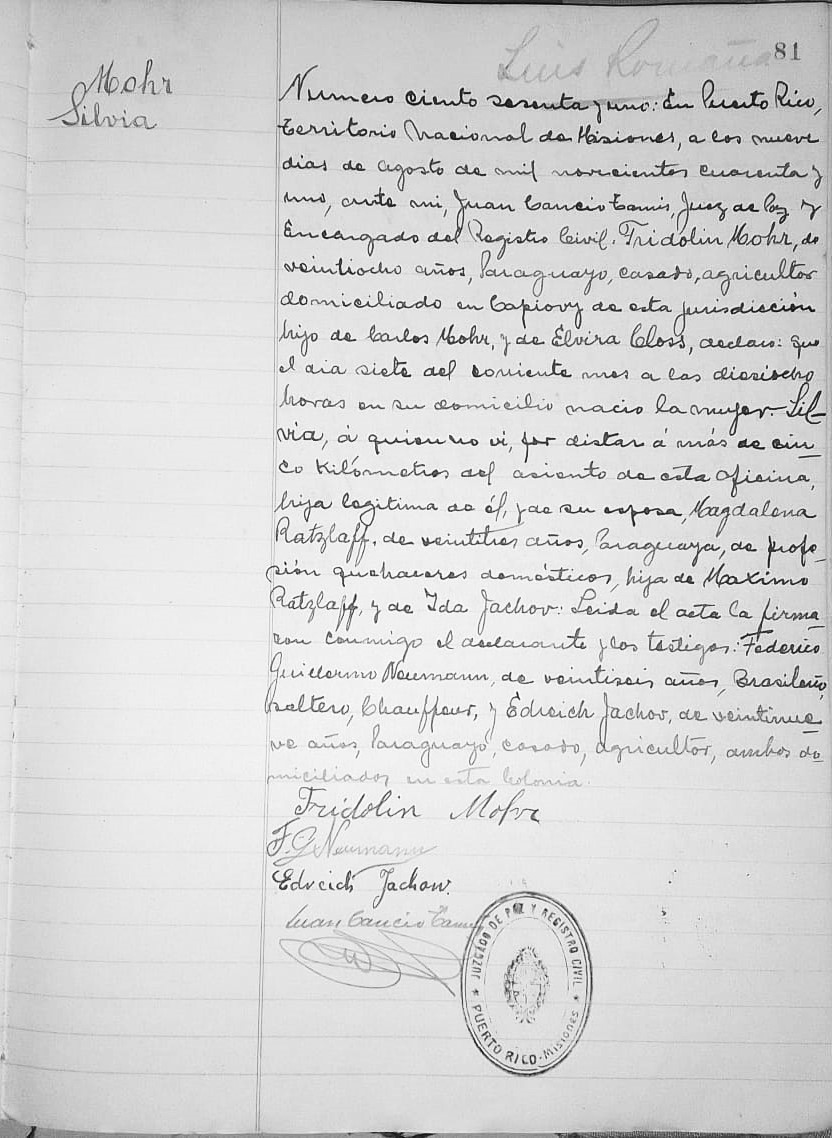 81
Luis Romaña
Mohr
Silvia
Numero ciento sesenta y uno: En Puerto Rico,
Territorio Nacional de Misiones, a los nueve
dias de agosto de mil novecientos cuarenta y
uno, ante mi, Juan Cancio Tamis, Juez de Paz y
Encargado del Registro Civil. Fridolin Mohr, de
veintiocho años, Paraguayo, casado, agricultor
domiciliado en Capiovy de esta jurisdicción
hijo de Carlos Mohr, y de Elvira Closs, declaro: que
el dia siete del corriente mes a las dieciocho
horas en su domicilio nacio la mujer: Sil-
via, á quien no vi, por distar á más de cin-
co Kilómetros del asiento de esta oficina,
hija legitima de él, y de su esposa, Magdalena
Ratzlaff, de veintitres años, Paraguaya, de profe-
sión quehaceres domésticos, hija de Maximo
Ratzlaff, y de Ida Jachov: Leida el acta la firma-
ron conmigo el declarante y los testigos: Federico
Guillermo Neumann, de veintiseis años, Brasileño,
soltero, Chauffeur, y Edreich Jachov, de veintinue-
ve años, Paraguayo, casado, agricultor, ambos do-
miciliados en esta Colonia.
Fridolin Mohr
F. G. Neumann
Edreich Jachow.
Juan Cancio Tamis
JUZGADO DE PAZ Y REGISTRO CIVIL
PUERTO RICO - MISIONES